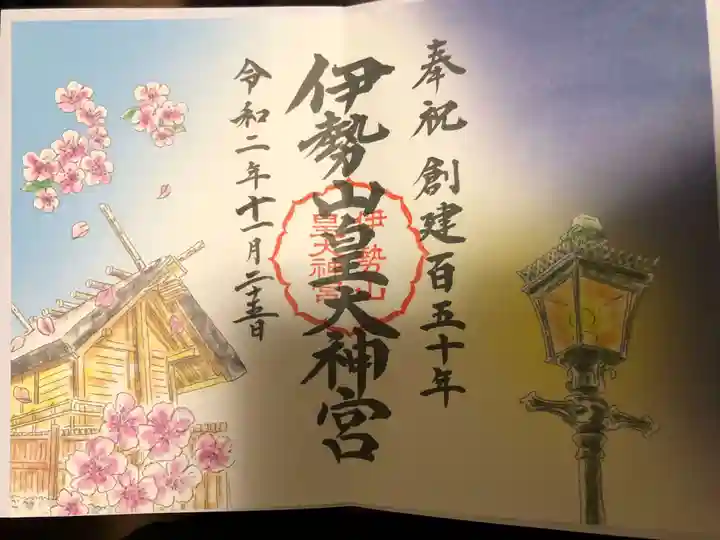 奉祝 創建百五十年
伊勢山皇大神宮
伊勢山
皇大神宮
令和二年十一月二十五日